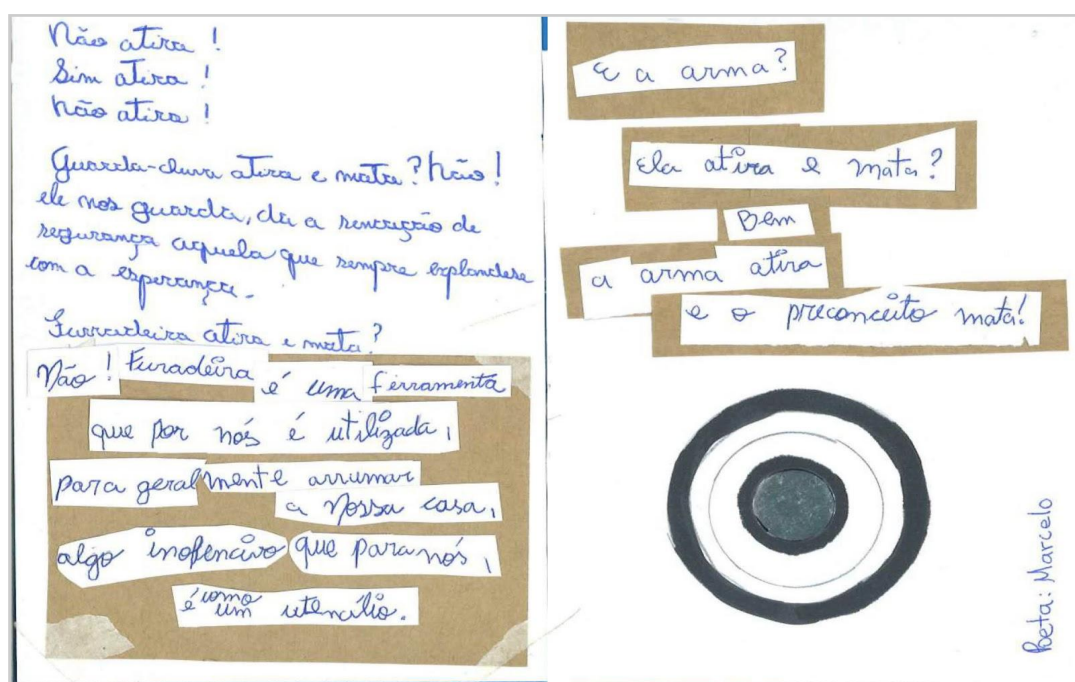 Não atira !
Sim atira !
Não atira !
Guarda-chuva atira e mata? Não!
ele nos guarda, da a sencação de
segurança aquela que sempre explandese
com a esperança.
Furradeira atira e mata?
Não ! Furadeira é uma ferramenta
que por nós é utilizada,
para geralmente arrumar
a nossa casa,
algo inofencivo que para nós,
é como um utencílio.
E a arma?
Ela atira e mata?
Bem
a arma atira
e o preconceito mata!
Poeta: Marcelo